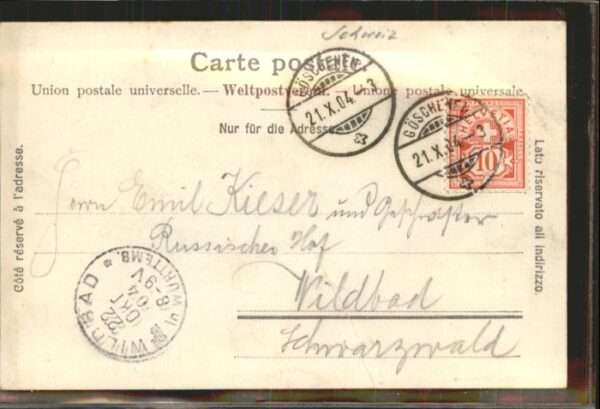 Schweiz
Carte postale
Union postale universelle. — Weltpostverein. — Unione postale universale.
Nur für die Adresse
Côté réservé à l'adresse.
Lato riservato all indirizzo.
GÖSCHENEN
21.X.04.–3
GÖSCHENEN
21.X.04.–3
HELVETIA
10
Herrn Emil Kieser und Geschwister
Russischer Hof
Wildbad
Schwarzwald
WILDBAD
WÜRTTEMB.
22 OKT 04
8-9V